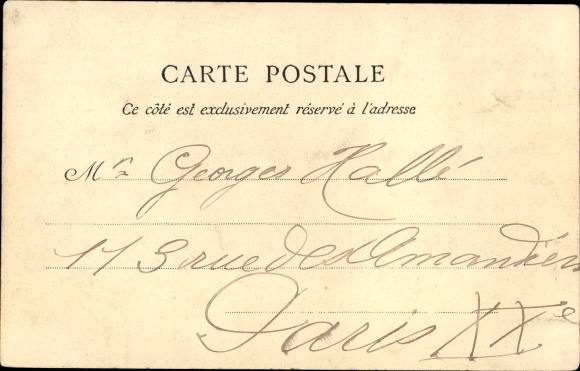 CARTE POSTALE
Ce côté est exclusivement réservé à l'adresse
Mr Georges Hallé
113 rue des Amandiers
Paris XXe